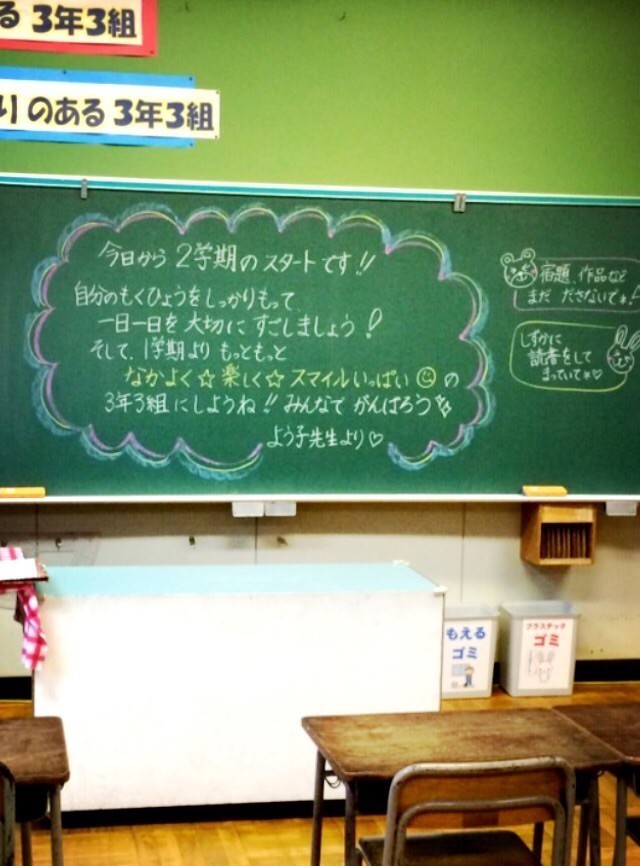 る 3年3組
りのある 3年3組
今日から 2学期のスタートです!!
自分のもくひょうをしっかりもって、
一日一日を 大切に すごしましょう!
そして、1学期より もっともっと
なかよく☆楽しく☆スマイルいっぱい☺の
3年3組にしようね!! みんなで がんばろう
よう子先生より♡
宿題、作品など
まだ ださないでネ!
しずかに
読書をして
まっていてネ♡
もえる
ゴミ
プラスチック
ゴミ